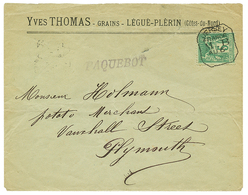 YVES THOMAS - GRAINS - LÉGUÉ-PLÉRIN (Côtes-du-Nord)
JERSEY
PAQUEBOT
Monsieur Holmann
potato Merchant
Vauxhall Street
Plymouth